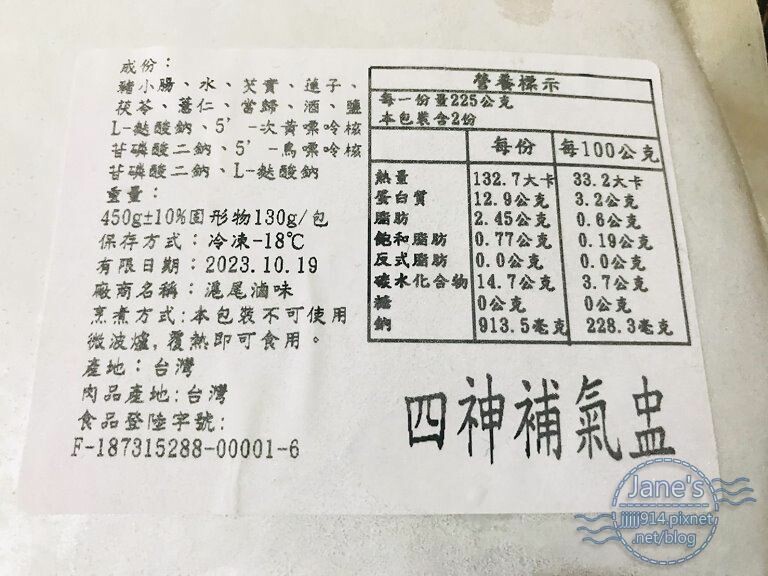 成份：
豬小腸、水、芡實、蓮子、
茯苓、薏仁、當歸、酒、鹽
L-麩酸鈉、5'-次黃嘌呤核
苷磷酸二鈉、5'-鳥嘌呤核
苷磷酸二鈉、L-麩酸鈉
重量：
450g±10%固形物130g/包
保存方式：冷凍-18℃
有限日期：2023.10.19
廠商名稱：滬尾滷味
烹煮方式:本包裝不可使用
微波爐,覆熱即可食用。
產地：台灣
肉品產地:台灣
食品登陸字號:
F-187315288-00001-6
營養標示
每一份量225公克
本包裝含2份
每份 每100公克
熱量 132.7大卡 33.2大卡
蛋白質 12.9公克 3.2公克
脂肪 2.45公克 0.6公克
飽和脂肪 0.77公克 0.19公克
反式脂肪 0.0公克 0.0公克
碳水化合物 14.7公克 3.7公克
糖 0公克 0公克
鈉 913.5毫克 228.3毫克
四神補氣盅
Jane's
jjjjj914.pixnet
.net/blog